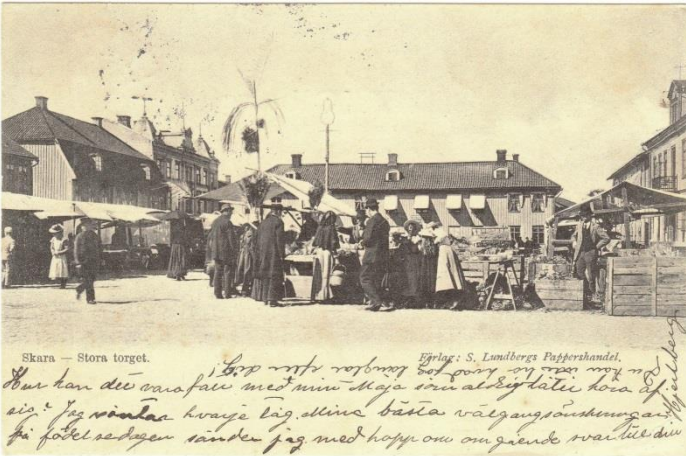 Skara — Stora torget.
Förlag: S. Lundbergs Pappershandel.
Hur kan det vara fatt med min Maja som aldrig låter höra af
sig? Jag väntar hvarje tåg. Mina bästa välgångsönskningar
på födelsedagen sänder jag med hopp om omgående svar till din